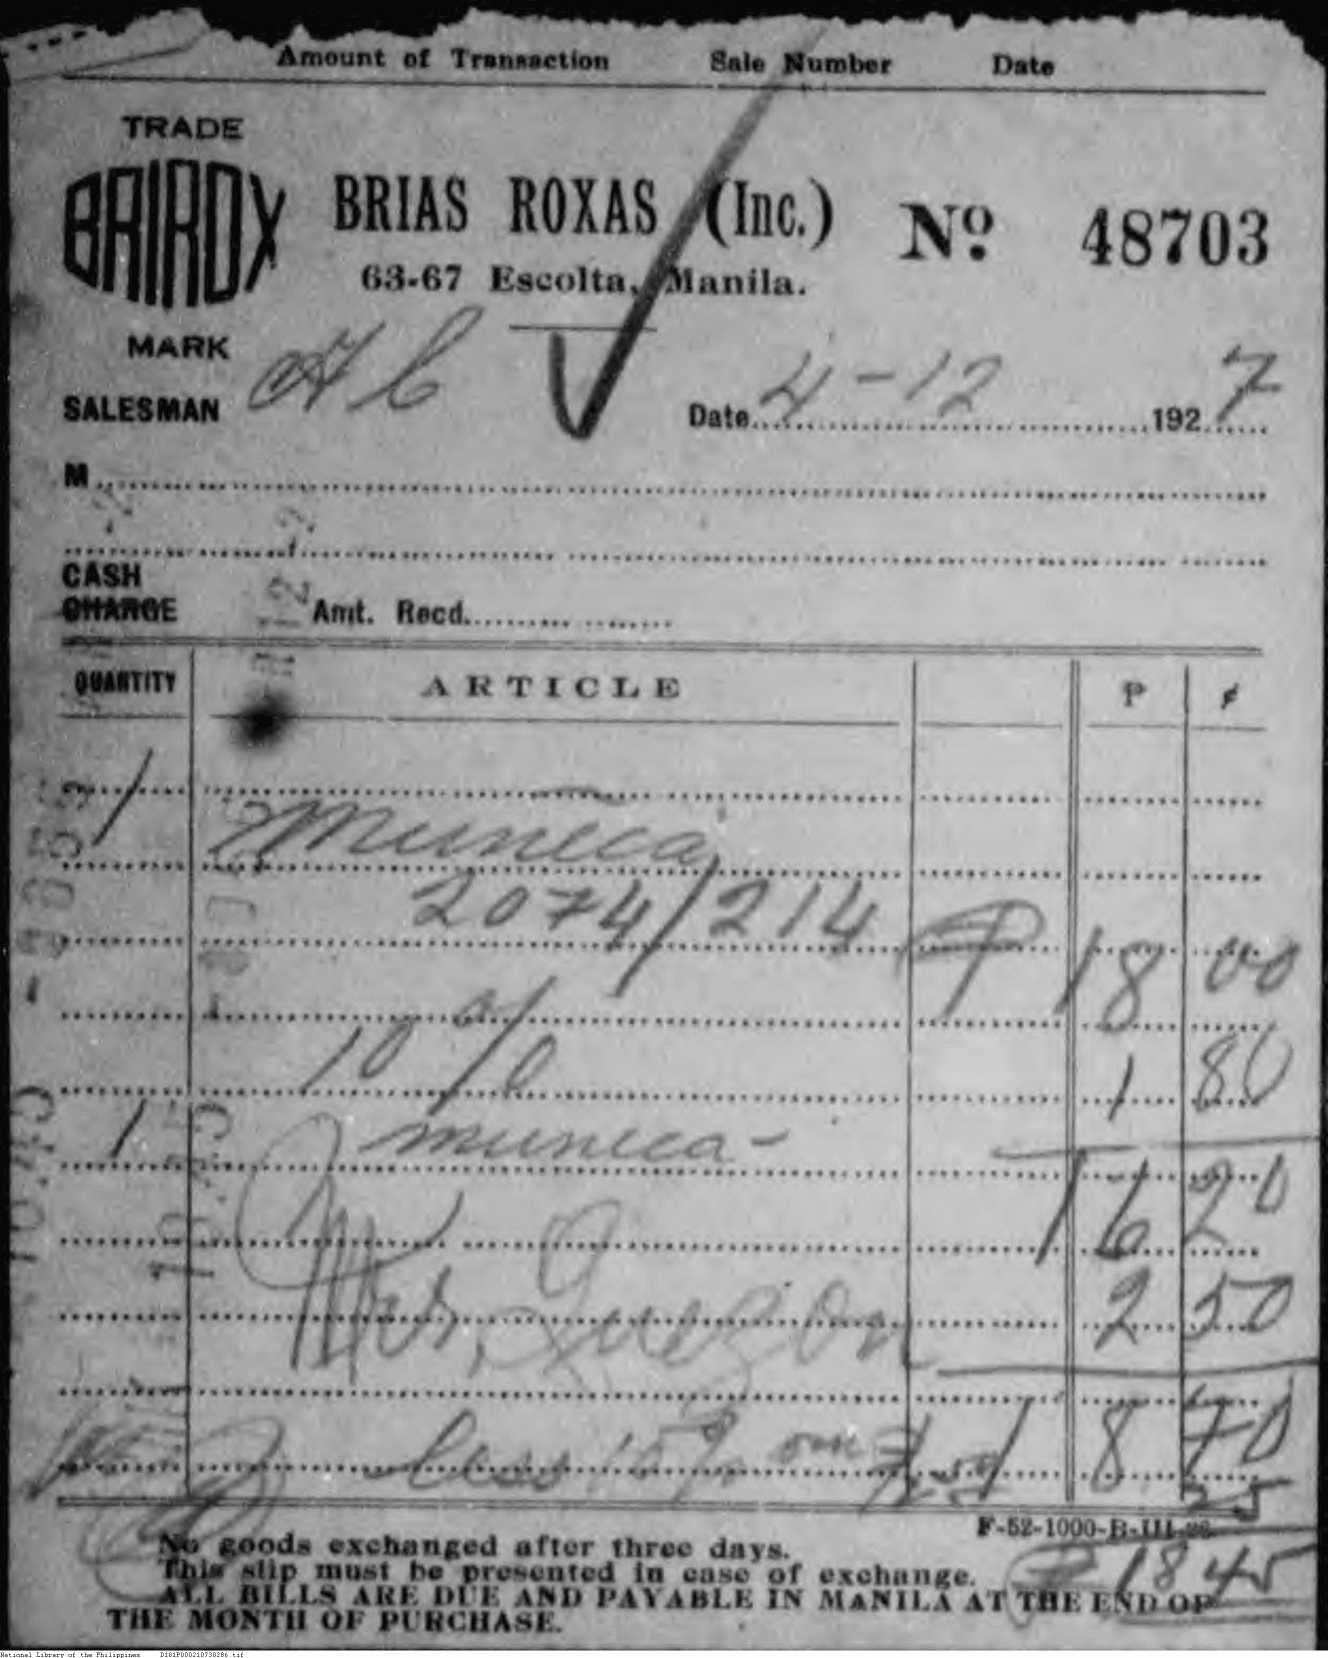 Amount of Transaction Sale Number Date
TRADE
BRIROX
MARK
BRIAS ROXAS (Inc.)
63-67 Escolta, Manila.
Nº 48703
SALESMAN
Date 4-12 1927
M
CASH
CHARGE Amt. Recd.
QUANTITY ARTICLE P ¢
1 Muneca
2074/214 P 18 00
10 % 1 80
1 muneca - 16 20
Mrs. Quezon 2 50
Less 10 % on 2.50 18 70
25
F-52-1000-B-III-26
P 18 45
No goods exchanged after three days.
This slip must be presented in case of exchange.
ALL BILLS ARE DUE AND PAYABLE IN MANILA AT THE END OF
THE MONTH OF PURCHASE.
National Library of the Philippines D181P000210738286.tif